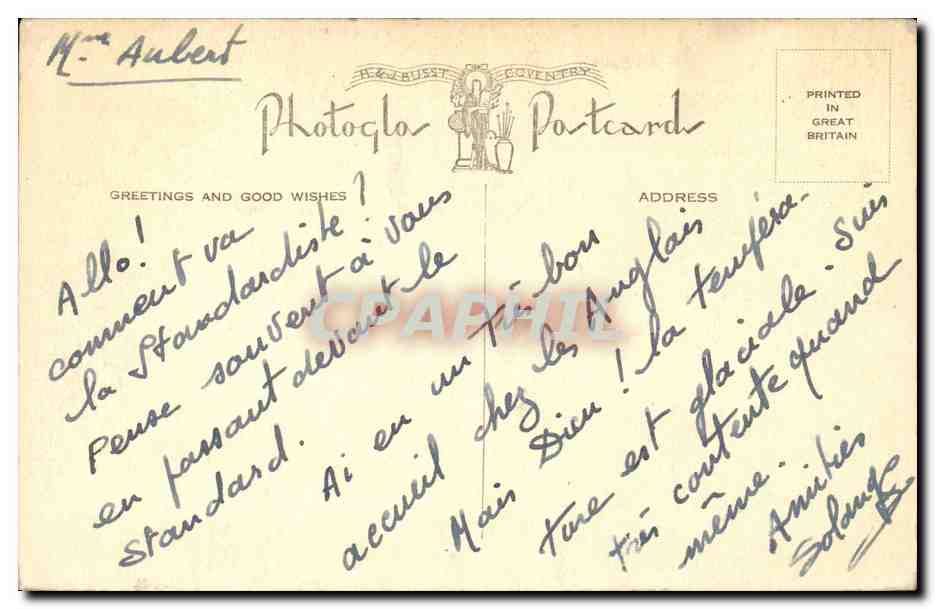 Mme Aubert
H & J. BUSST COVENTRY
Photoglo Postcard
PRINTED
IN
GREAT
BRITAIN
GREETINGS AND GOOD WISHES
ADDRESS
Allo!
comment va
la Standardiste?
Pense souvent à vous
en passant devant le
standard.
Ai eu un très bon
accueil chez les Anglais
Mais Dieu! la tempéra-
ture est glaciale. Suis
très contente quand
même.
Amitiés
Solange
CPAPHIL